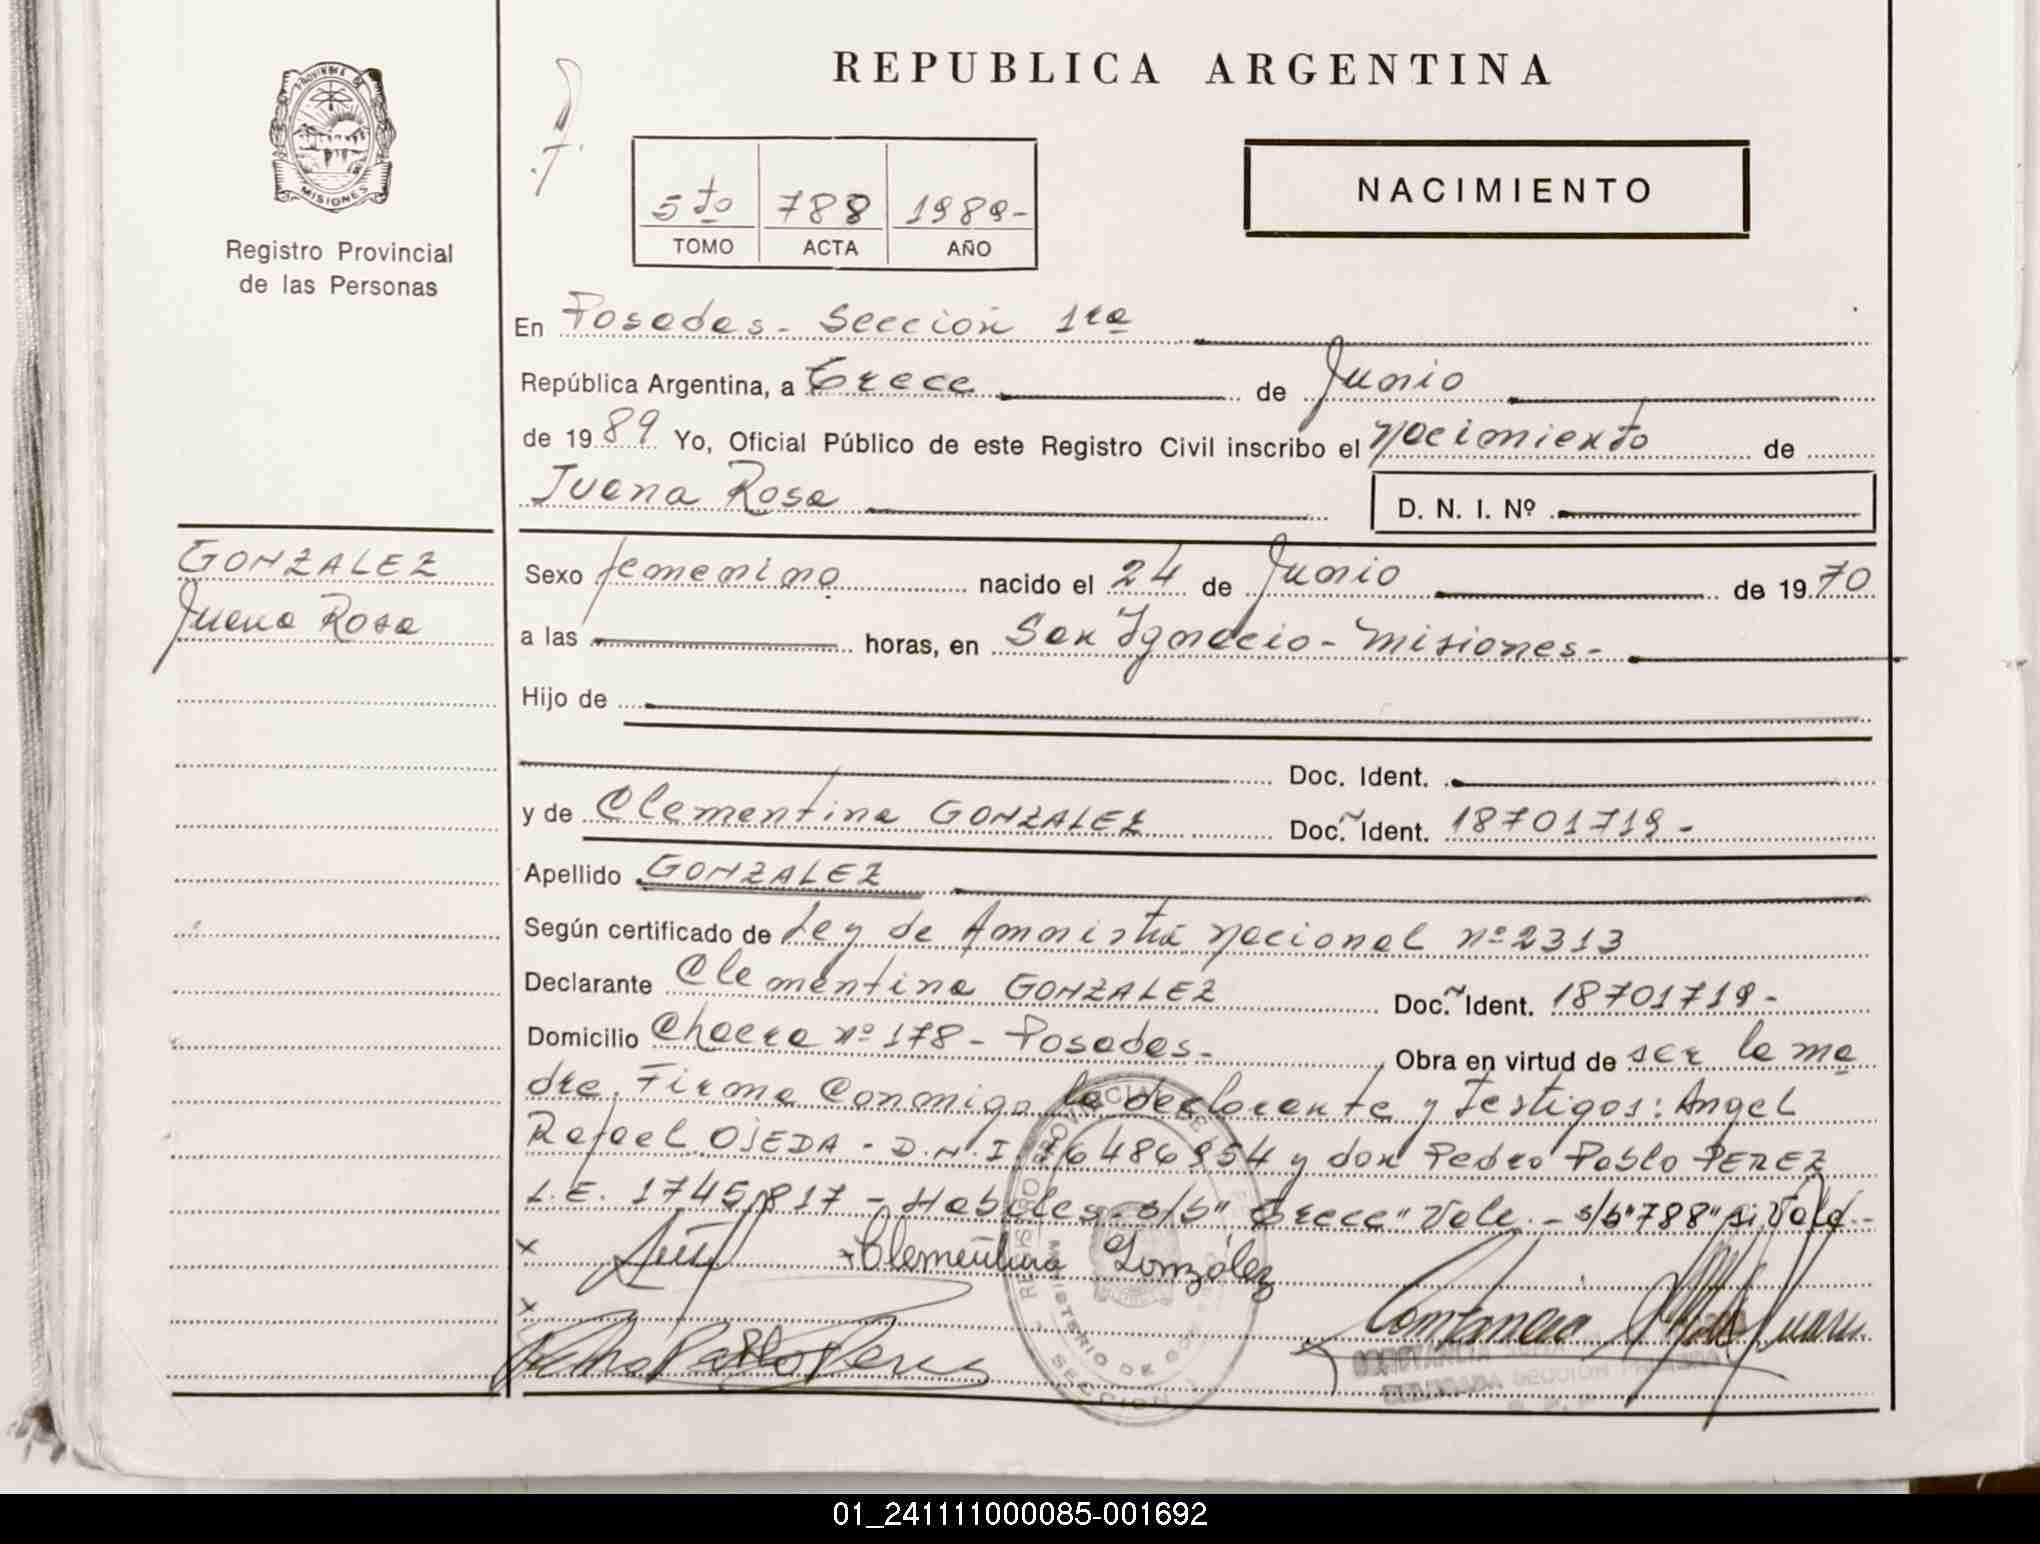 REPUBLICA ARGENTINA
PROVINCIA DE
MISIONES
Registro Provincial
de las Personas
5to 788 1989-
TOMO ACTA AÑO
NACIMIENTO
En Posadas - Sección 1ra
República Argentina, a Trece de Junio
de 1989 Yo, Oficial Público de este Registro Civil inscribo el nacimiento de
Juana Rosa D. N. I. Nº
GONZALEZ
Juana Rosa
Sexo femenino nacido el 24 de Junio de 1970
a las horas, en San Ignacio - Misiones -
Hijo de
Doc. Ident.
y de Clementina GONZALEZ Doc. Ident. 18701719 -
Apellido GONZALEZ
Según certificado de Ley de Amnistía nacional nº 2313
Declarante Clementina GONZALEZ Doc. Ident. 18701719 -
Domicilio Chacra nº 178 - Posadas - Obra en virtud de ser la ma
dre. Firma Conmigo la declarante y Testigos: Angel
Rafael OJEDA - D.N.I. 16486954 y don Pedro Pablo PEREZ
L.E. 1745817 - Habiles - s/b "Trece" Vale. - s/b "788" si Vale -
x x Clementina González
x Pedro Pablo Perez
SECCION
01_241111000085-001692